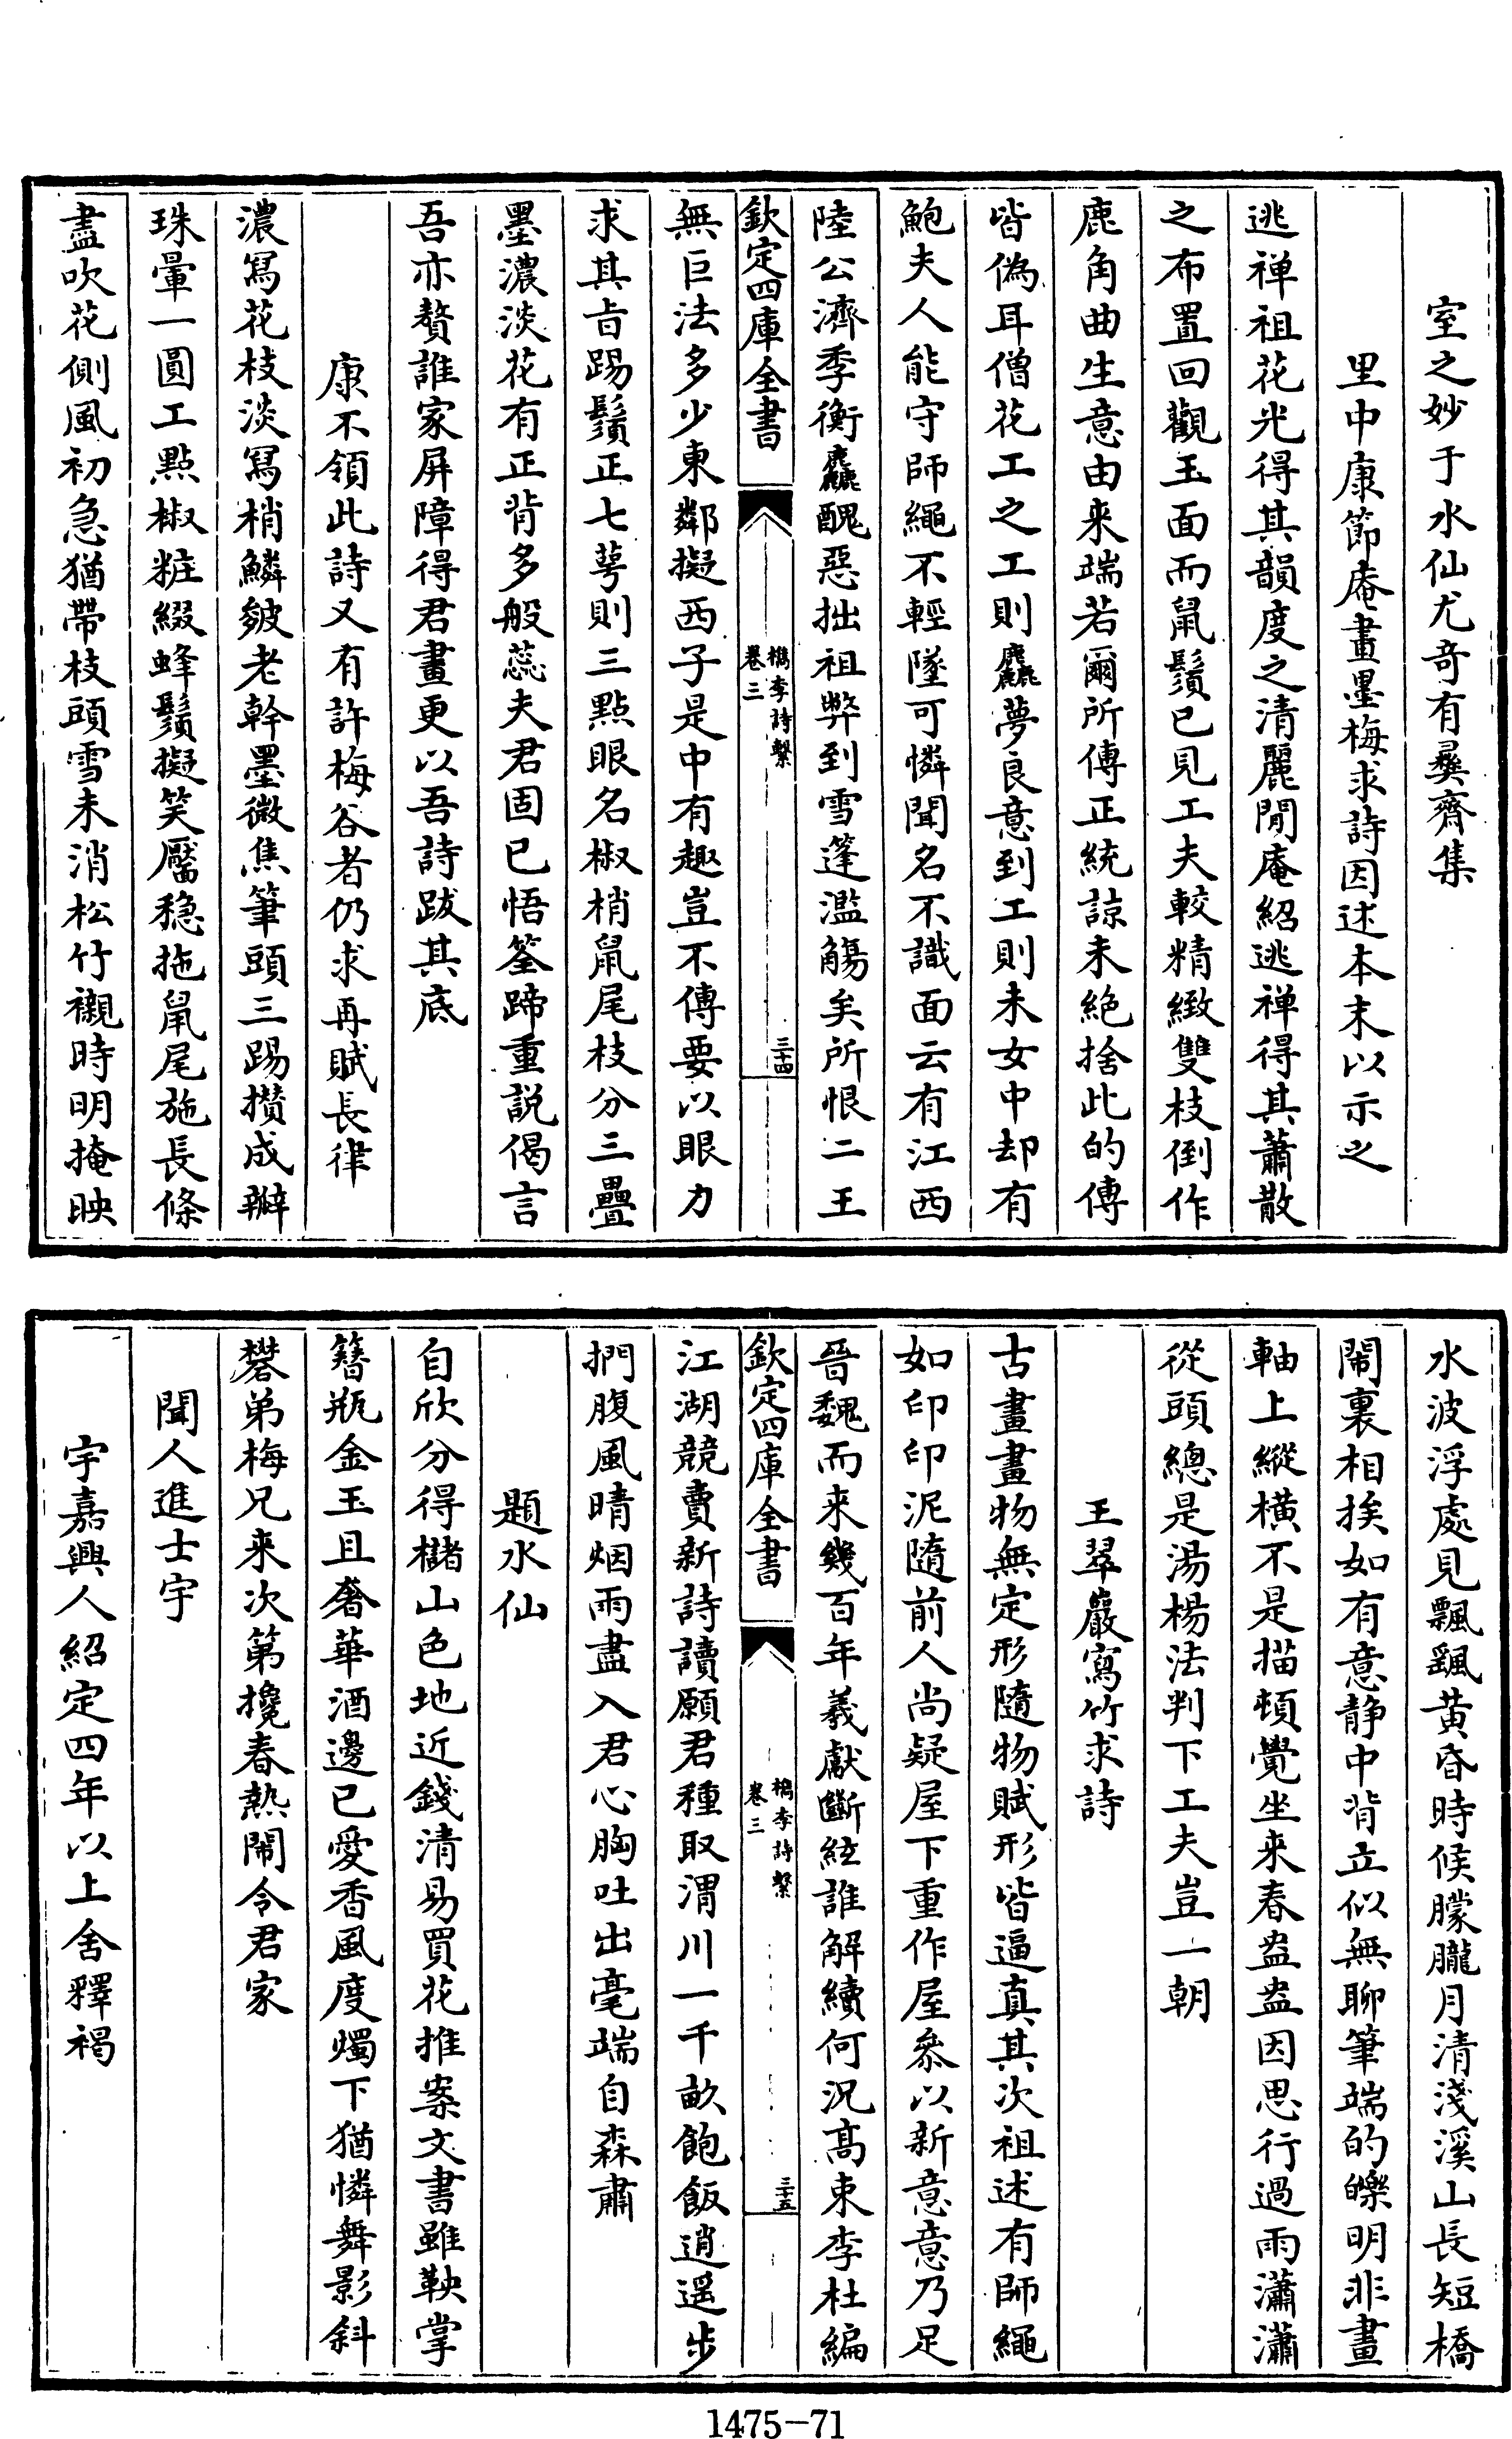 室之妙于水仙尤奇有彞齋集
里中康節庵畫墨梅求詩因述本末以示之
逃禅祖花光得其韻度之清麗閒庵紹逃禅得其蕭散
之布置回觀玉面而鼠鬚已見工夫較精緻雙枝倒作
鹿角曲生意由来端若爾所傳正統諒未絶捨此的傳
皆偽耳僧花工之工則麤夢良意到工則未女中却有
鮑夫人能守師繩不輕墜可憐聞名不識面云有江西
陸公濟季衡麤醜惡拙祖弊到雪篷濫觴矣所恨二王
欽定四庫全書
檇李詩繫
卷三
三十四
無巨法多少東鄰擬西子是中有趣豈不傳要以眼力
求其㫖踢鬚正七萼則三點眼名椒梢鼠尾枝分三疊
墨濃淡花有正背多般蕊夫君固已悟筌蹄重説偈言
吾亦贅誰家屏障得君畫更以吾詩跋其底
康不領此詩又有許梅谷者仍求再賦長律
濃寫花枝淡寫梢鱗皴老幹墨微焦筆頭三踢攅成瓣
珠暈一圓工點椒粧綴蜂鬚擬笑靨穏拖䑕尾施長條
盡吹花側風初急猶帶枝頭雪未消松竹襯時明掩映
水波浮處見飄颻黄昏時候朦朧月清淺溪山長短橋
閙裏相挨如有意静中背立似無聊筆端的皪明非畫
軸上縱横不是描頓覺坐来春盎盎因思行過雨瀟瀟
從頭總是湯楊法判下工夫豈一朝
王翠巖寫竹求詩
古畫畫物無定形隨物賦形皆逼真其次祖述有師繩
如印印泥隨前人尚疑屋下重作屋叅以新意意乃足
晉魏而来幾百年羲獻斷絃誰解續何況髙束李杜編
欽定四庫全書
檇李詩繫
卷三
三十五
江湖競賣新詩讀願君種取渭川一千畝飽飯逍遥步
捫腹風晴烟雨盡入君心胸吐出毫端自森肅
題水仙
自欣分得櫧山色地近錢清易買花推案文書雖鞅掌
簪瓶金玉且奢華酒邊已愛香風度燭下猶憐舞影斜
礬弟梅兄来次第攙春熱閙令君家
聞人進士宇
宇嘉興人紹定四年以上舍釋褐
1475-71